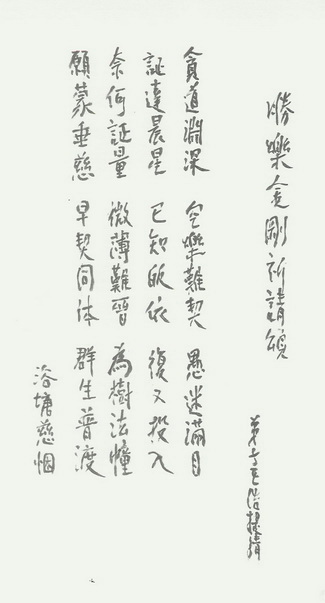 勝樂金剛祈請頌
弟子請
貪道淵深 空樂難契 愚迷滿目
証達晨星 已知皈依 復又投入
奈何証量 微薄難晉 為樹法幢
願蒙垂慈 早契同体 群生普渡
浴塘慈